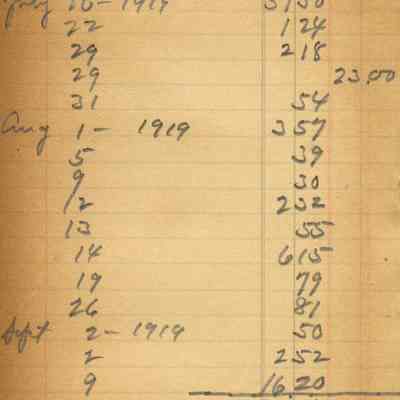 1919
22 124
29 218
29 23.00
31 54
Aug 1 - 1919 357
5 39
9 30
12 232
13 55
14 615
19 79
26 81
Sept 2 - 1919 50
2 252
9 16.20